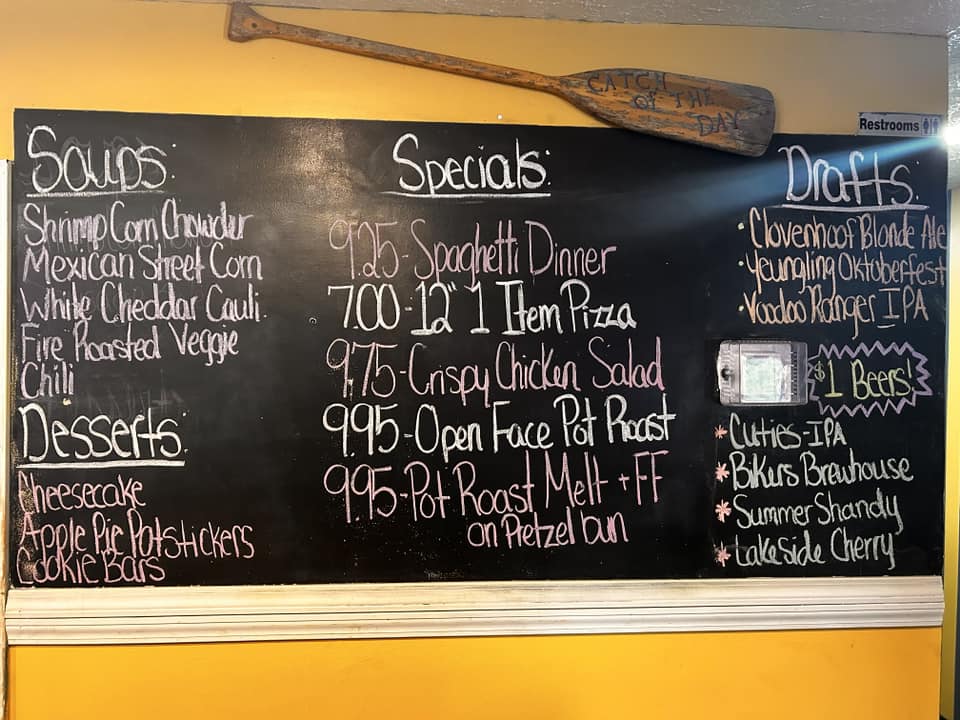 CATCH
OF THE
DAY
Restrooms
Soups:
Shrimp Corn Chowder
Mexican Street Corn
White Cheddar Cauli.
Fire Roasted Veggie
Chili
Desserts
Cheesecake
Apple Pie Potstickers
Cookie Bars
Specials:
9.25-Spaghetti Dinner
7.00-12" 1 Item Pizza
9.75-Crispy Chicken Salad
9.95-Open Face Pot Roast
9.95-Pot Roast Melt + FF
on Pretzel bun
Drafts:
• Clovenhoof Blonde Ale
• Yeungling Oktoberfest
• Voodoo Ranger IPA
$1 Beers!
* Cuties-IPA
* Bikers Brewhouse
* Summer Shandy
* Lakeside Cherry